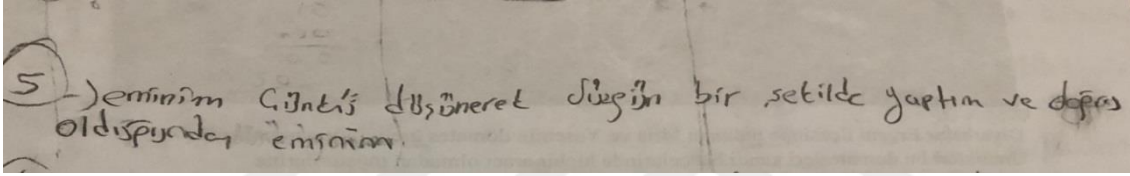 5-) eminim Çünkü düşünerek düzgün bir şekilde yaptım ve doğru
olduğundan eminim.